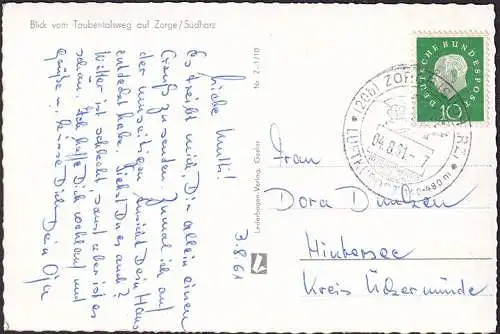 Blick vom Taubentalsweg auf Zorge/Südharz
3.8.61
Liebe Mutti!
Es treibt mich, Dir allein einen
Gruß zu senden. Zumal ich auf
der umseitigen Ansicht Dein Haus
entdeckt habe. Siehst Du es auch?
Wetter ist schlecht, sonst aber ist es
schön. Ich hoffe Dich wohlauf und
grüße u. küsse Dich
Dein
Nr. Z-1/10
Lederbogen-Verlag, Goslar
DEUTSCHE BUNDESPOST
10
(20b) ZORGE
04.8.61-7
Frau
Dora
Hintersee
Kreis Ückermünde